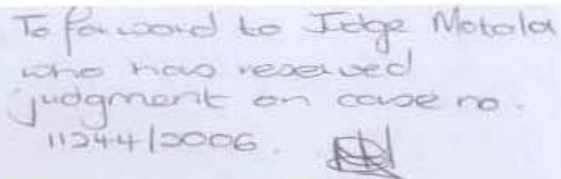 To forward to Judge Motala
who has reserved
judgment on case no.
11244/2006.